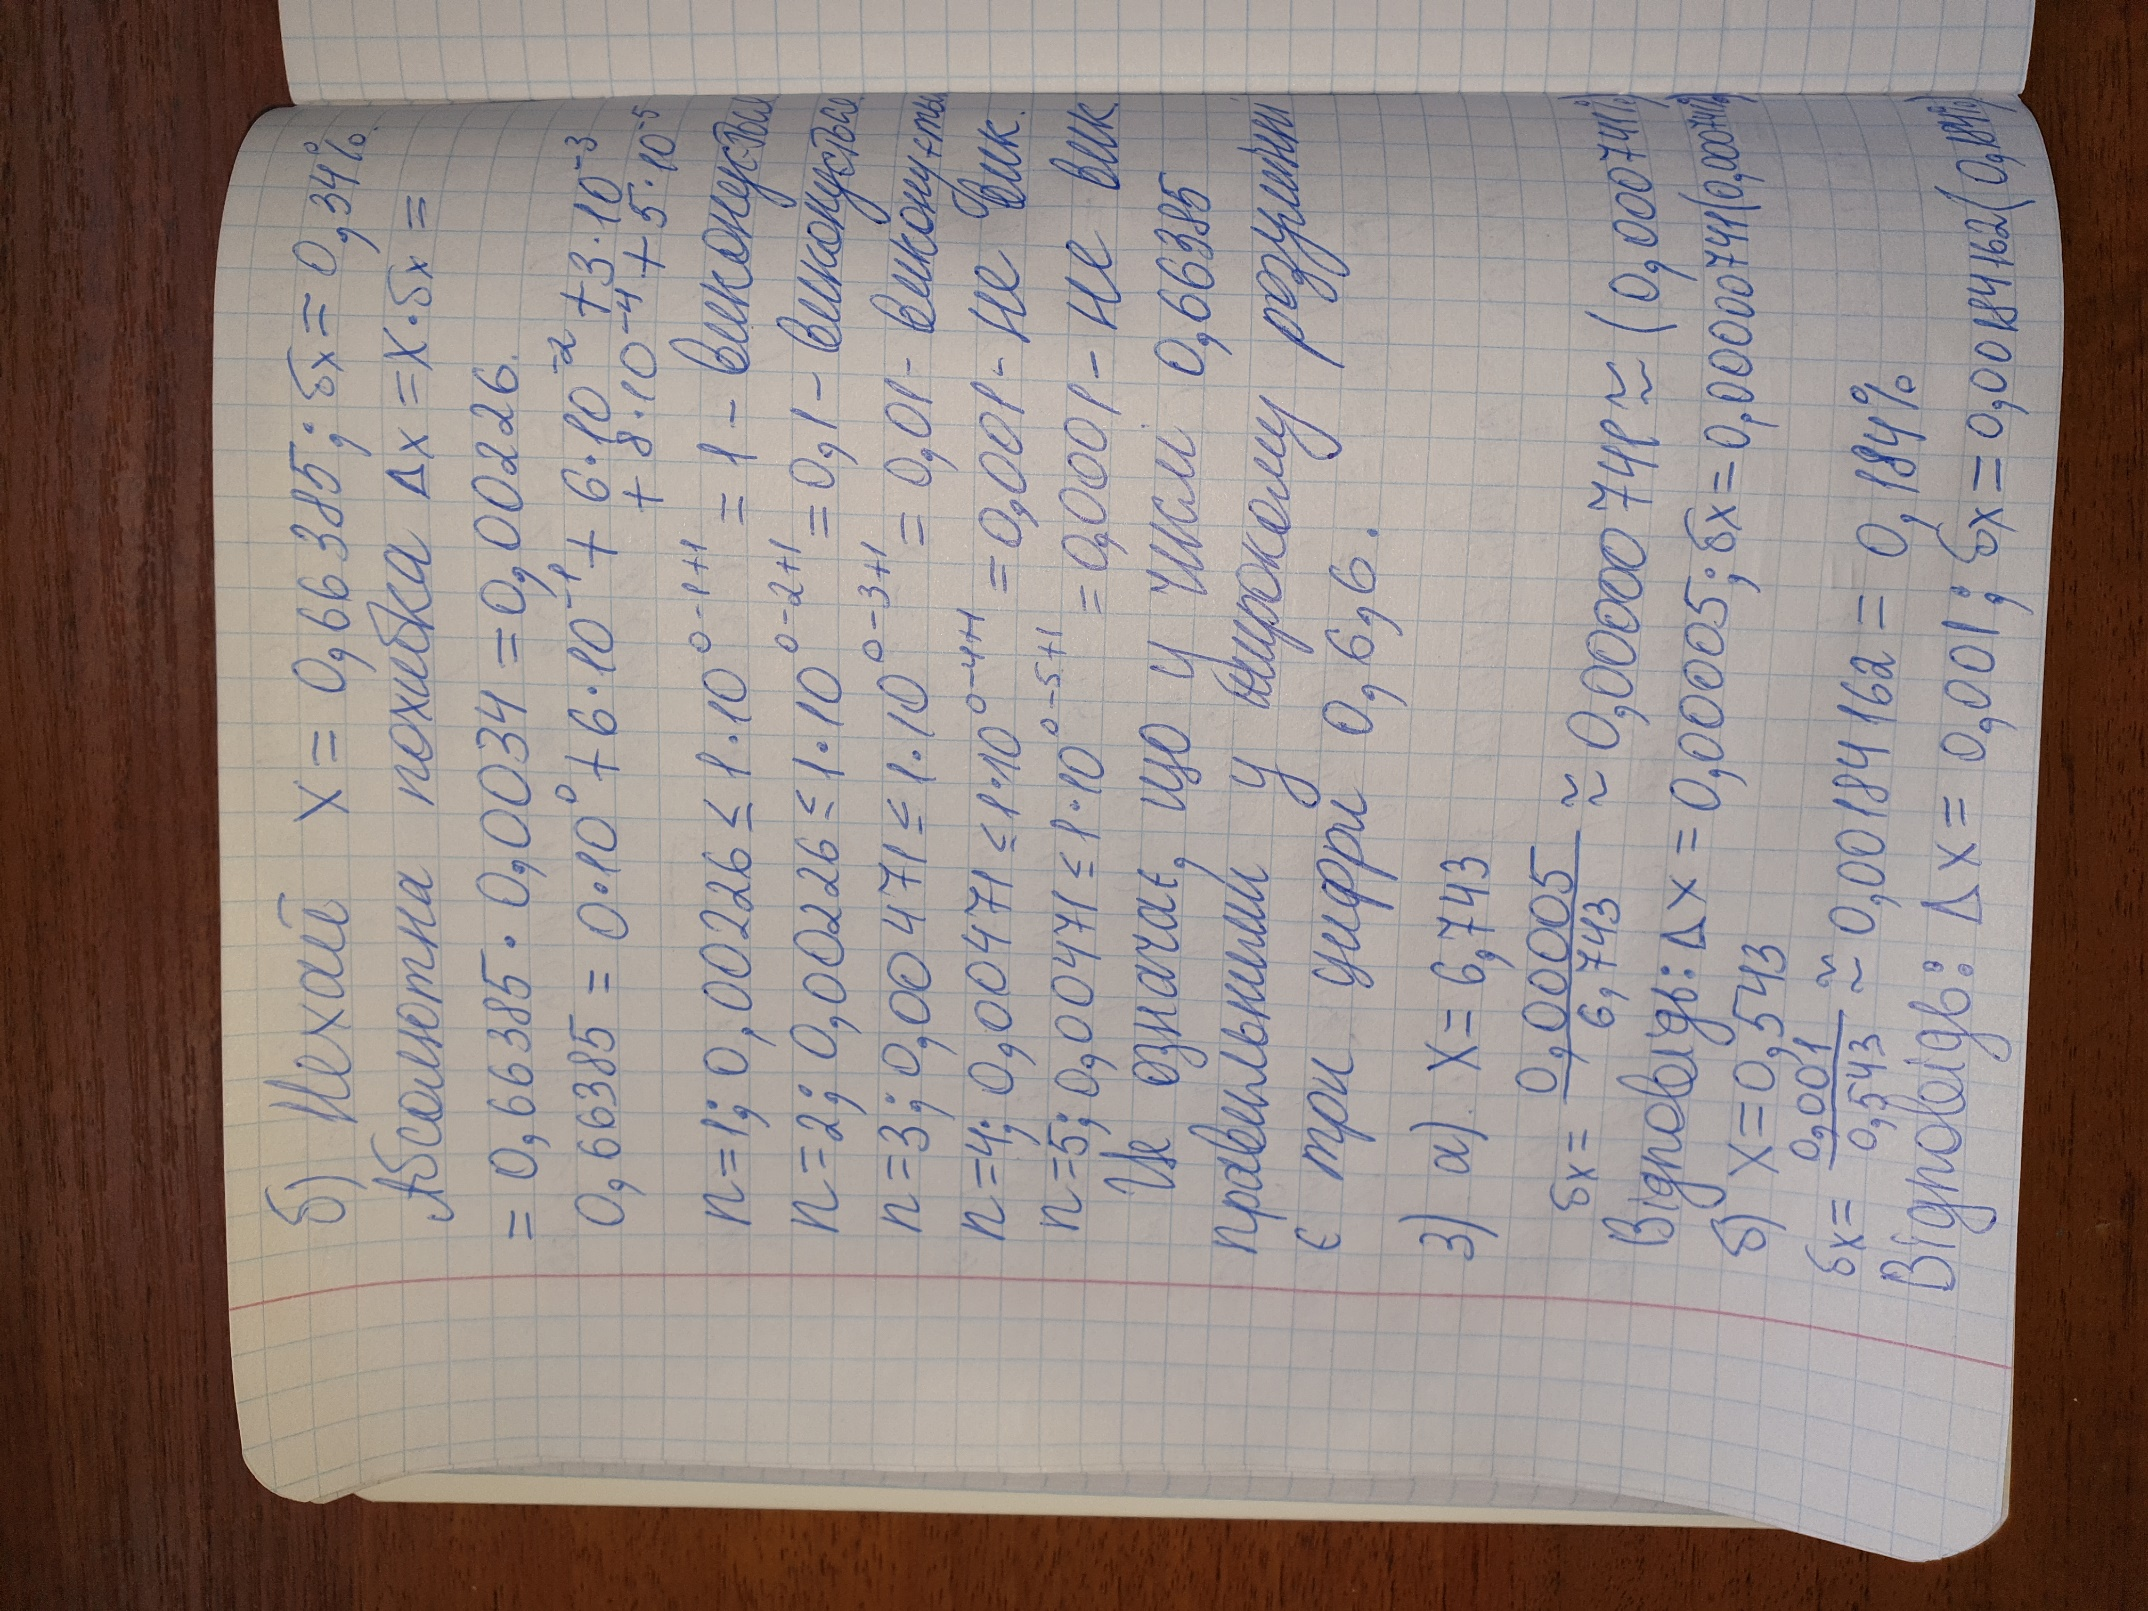 б) Нехай x = 0,66385; δx = 0,34%.
Абсолютна похибка Δx = x·δx =
= 0,66385 · 0,0034 = 0,00226.
0,66385 = 0·10⁰ + 6·10⁻¹ + 6·10⁻² + 3·10⁻³
+ 8·10⁻⁴ + 5·10⁻⁵
n=1; 0,00226 ≤ 1·10⁰⁻¹⁺¹ = 1 – виконується
n=2; 0,00226 ≤ 1·10⁰⁻²⁺¹ = 0,1 – виконується
n=3; 0,00471 ≤ 1·10⁰⁻³⁺¹ = 0,01 – виконується
n=4; 0,00471 ≤ 1·10⁰⁻⁴⁺¹ = 0,001 – не вик.
n=5; 0,00471 ≤ 1·10⁰⁻⁵⁺¹ = 0,0001 – не вик
Це означає, що у числі 0,66385
правильними у широкому розумінні
є три цифри 0,6,6.
3) а) x = 6,743
δx = 0,00005/6,743 ≈ 0,00000741 ≈ (0,000741%)
Відповідь: Δx = 0,00005; δx = 0,00000741(0,000741%)
б) x = 0,543
δx = 0,001/0,543 ≈ 0,00184162 = 0,184%
Відповідь: Δx = 0,001; δx = 0,00184162(0,184%)